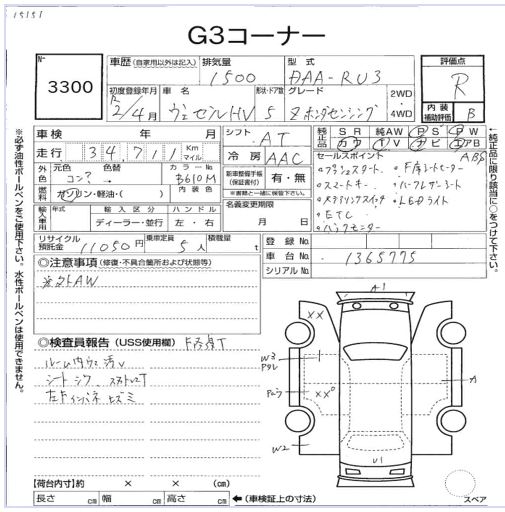 15151
G3コーナー
No
3300
車歴 (自家用以外は記入) 排気量 型式
1500 DAA-RU3
初度登録年月 車名 形状・ドア数 グレード 2WD・4WD
R2/4月 ヴェゼルHV 5 Z ホンダセンシング
評価点
R
内装補助評価 B
車検 年 月
走行 34,711 Km マイル
シフト AT
冷房 AAC
純正品 SR 純AW PS PW
カワ TV ナビ エアB
ABS
外色 元色 色替 カラーNo
コン? B610M
燃料 ガソリン・軽油・( ) 内装色
新車整備手帳(保証書付) 有・無
※書類と一緒に保管して下さい。
輸入車用 年式 輸入区分 ハンドル
ディーラー・並行 左・右
名義変更期限
月 日
リサイクル預託金 11050円 乗車定員 5人 積載量 t
セールスポイント
・プッシュスタート
・スマートキー
・ステアリングスイッチ
・ETC
・バックモニター
・F席シートヒーター
・ハーフレザーシート
・LEDライト
登録No
車台No 1365775
シリアルNo
◎注意事項 (修復・不具合箇所および状態等)
社外AW
◎検査員報告 (USS使用欄)
ルーム内ウス汚レ
シートシワ
左Fインパネ ヒズミ
【荷台内寸】約 × × (cm)
長さ cm 幅 cm 高さ cm ←(車検証上の寸法)
A1
XX
W3
XX
W2
A
U1
スペア
※必ず油性ボールペンをご使用下さい。水性ボールペンは使用できません。
←純正品に限り該当に○をつけて下さい。